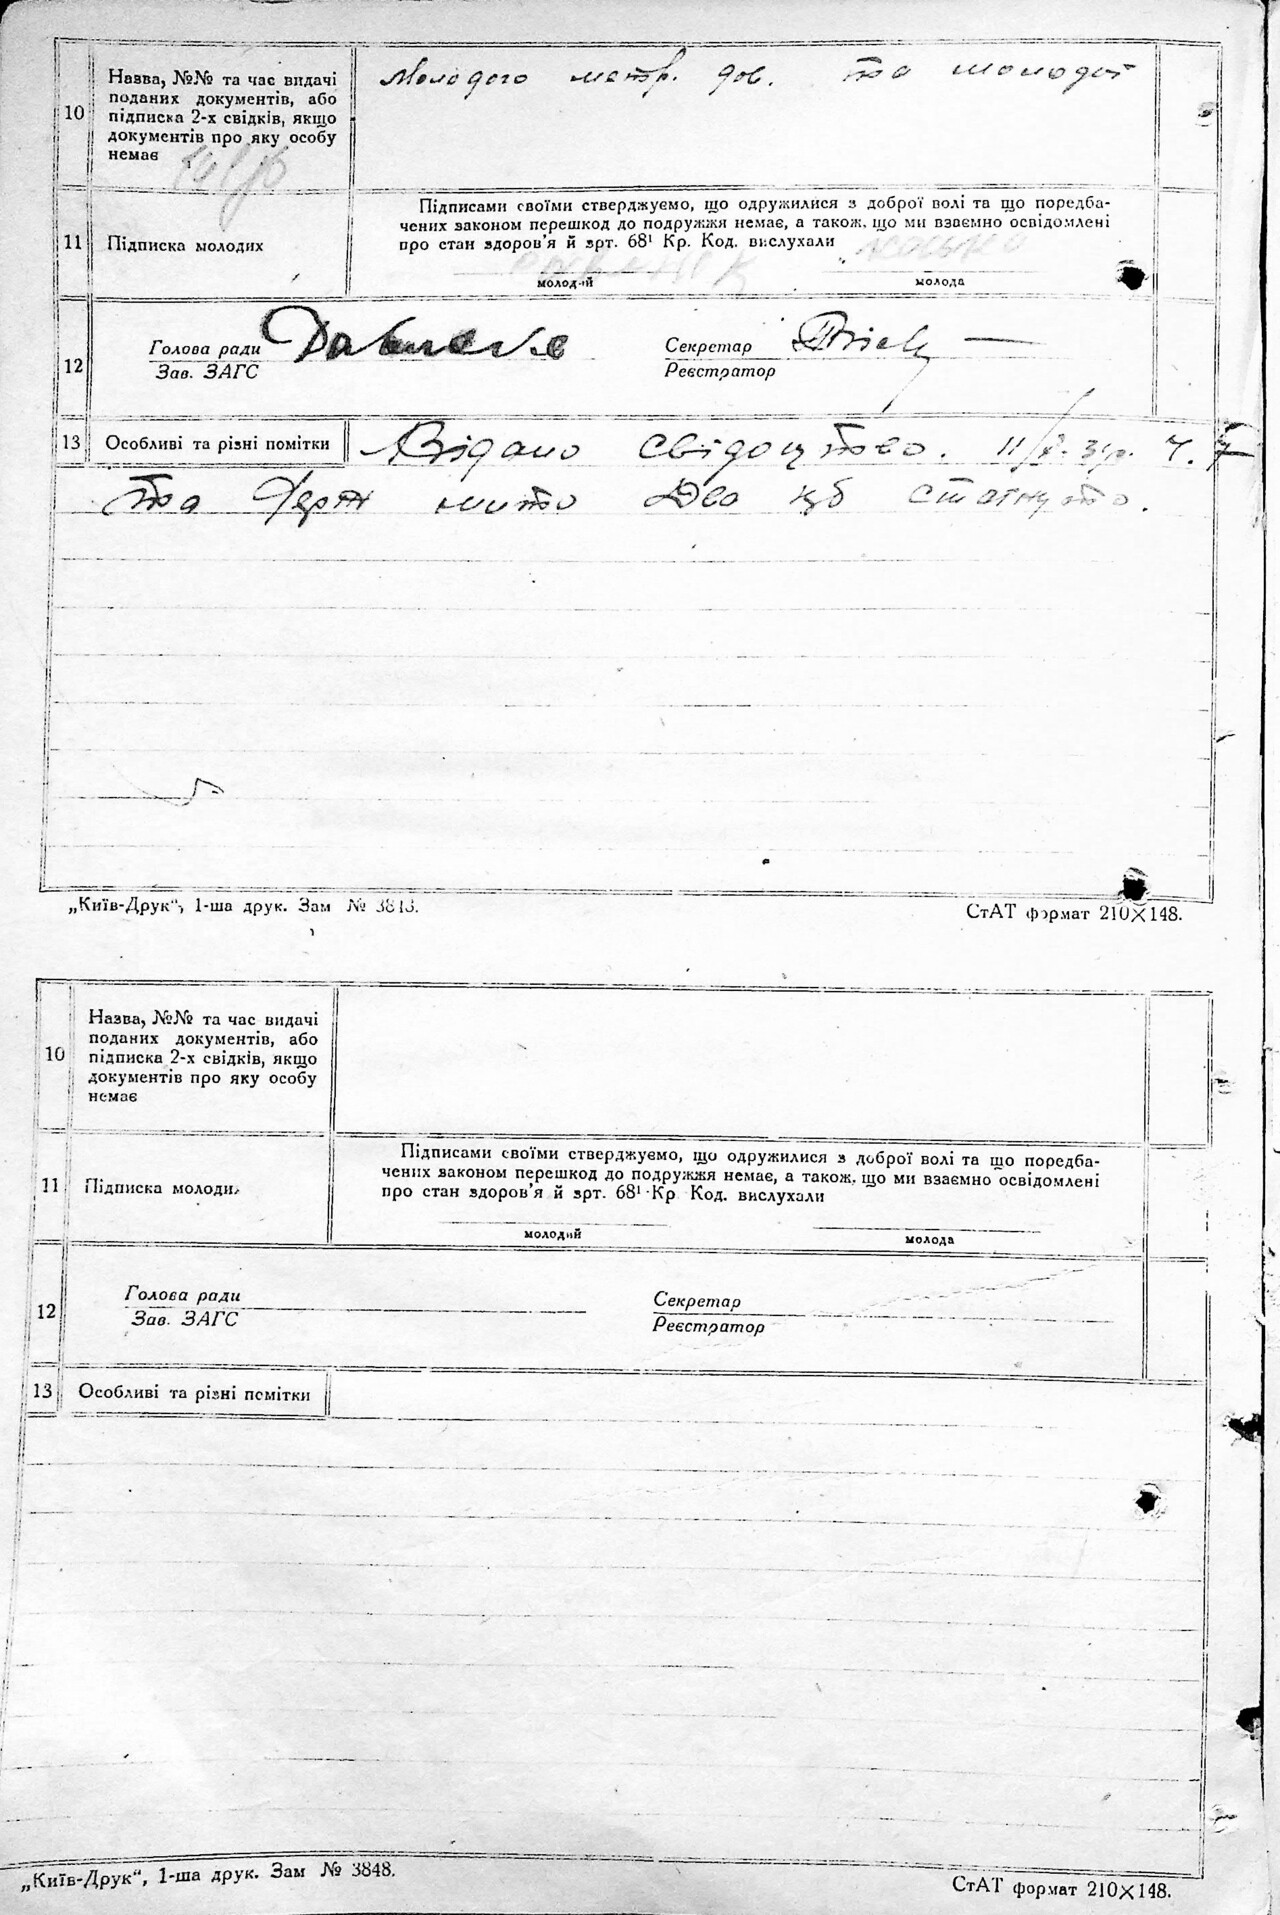 10
Назва, №№ та час видачі
поданих документів, або
підписка 2-х свідків, якщо
документів про яку особу
немає
Молодого метр. дов. та молодої
11
Підписка молодих
Підписами своїми стверджуємо, що одружилися з доброї волі та що поредба-
чених законом перешкод до подружжя немає, а також, що ми взаємно освідомлені
про стан здоров'я й зрт. 68¹ Кр. Код. вислухали
молодий
молода
12
Голова ради
Зав. ЗАГС
Секретар
Реєстратор
13
Особливі та різні помітки
Видано свідоцтво. Ч. 7
та Держ мито Два крб стягнуто.
„Київ-Друк“, 1-ша друк. Зам № 3843.
СтАТ формат 210×148.
10
Назва, №№ та час видачі
поданих документів, або
підписка 2-х свідків, якщо
документів про яку особу
немає
11
Підписка молодих
Підписами своїми стверджуємо, що одружилися з доброї волі та що поредба-
чених законом перешкод до подружжя немає, а також, що ми взаємно освідомлені
про стан здоров'я й зрт. 68¹ Кр Код. вислухали
молодий
молода
12
Голова ради
Зав. ЗАГС
Секретар
Реєстратор
13
Особливі та різні помітки
„Київ-Друк“, 1-ша друк. Зам № 3848.
СтАТ формат 210×148.